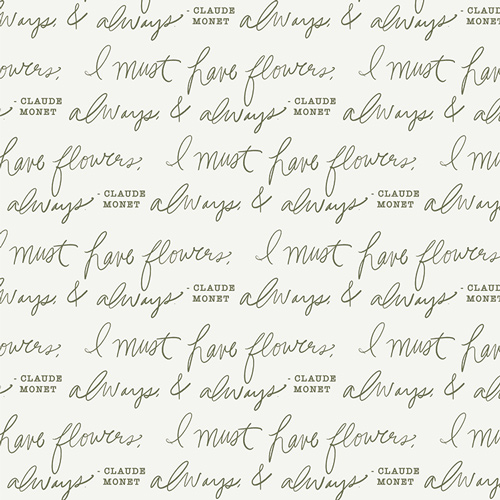 always, & always - CLAUDE MONET always, & always - CLAUDE
owers, I must have flowers, I must hav
- CLAUDE MONET always, & always - CLAUDE MONET always, & al
have flowers, I must have flowers, I mus
always - CLAUDE MONET always, & always - CLAUDE MONET alway
I must have flowers, I must have flowers
always, & always - CLAUDE MONET always, & always - CLAUDE MONE
owers, I must have flowers, I must hav
- CLAUDE MONET always, & always - CLAUDE MONET always, & al
have flowers, I must have flowers, I mus
always - CLAUDE MONET always, & always - CLAUDE MONET alway